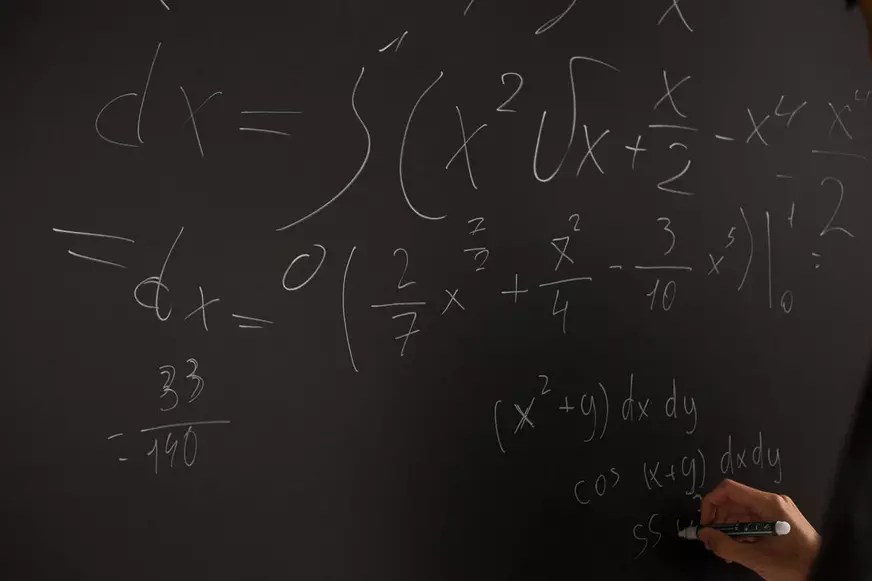 dx = ∫ 1 ( x² √x + x/2 - x⁴ - x⁴/2
= dx = 0 ( 2/7 x^7/2 + x²/4 - 3/10 x⁵ ) |₀¹ =
= 33/140
(x² + y) dx dy
cos (x+y) dx dy